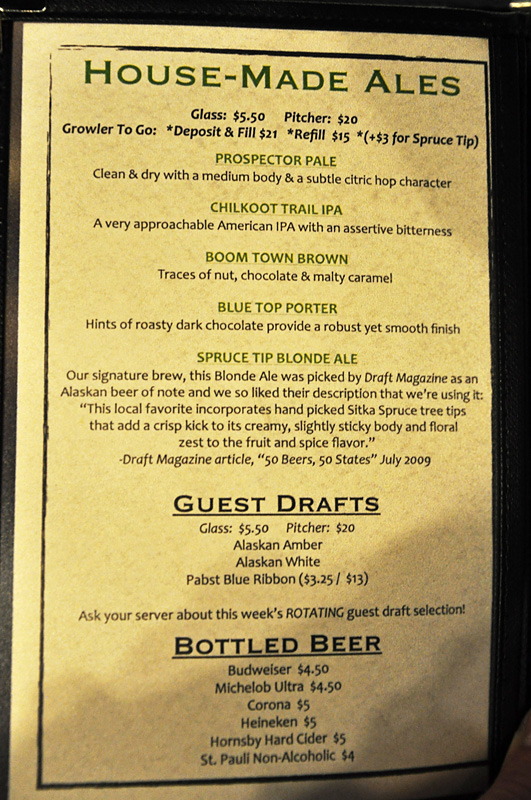 HOUSE-MADE ALES
Glass: $5.50 Pitcher: $20
Growler To Go: *Deposit & Fill $21 *Refill $15 *(+$3 for Spruce Tip)
PROSPECTOR PALE
Clean & dry with a medium body & a subtle citric hop character
CHILKOOT TRAIL IPA
A very approachable American IPA with an assertive bitterness
BOOM TOWN BROWN
Traces of nut, chocolate & malty caramel
BLUE TOP PORTER
Hints of roasty dark chocolate provide a robust yet smooth finish
SPRUCE TIP BLONDE ALE
Our signature brew, this Blonde Ale was picked by Draft Magazine as an
Alaskan beer of note and we so liked their description that we're using it:
"This local favorite incorporates hand picked Sitka Spruce tree tips
that add a crisp kick to its creamy, slightly sticky body and floral
zest to the fruit and spice flavor."
-Draft Magazine article, "50 Beers, 50 States" July 2009
GUEST DRAFTS
Glass: $5.50 Pitcher: $20
Alaskan Amber
Alaskan White
Pabst Blue Ribbon ($3.25 / $13)
Ask your server about this week's ROTATING guest draft selection!
BOTTLED BEER
Budweiser $4.50
Michelob Ultra $4.50
Corona $5
Heineken $5
Hornsby Hard Cider $5
St. Pauli Non-Alcoholic $4